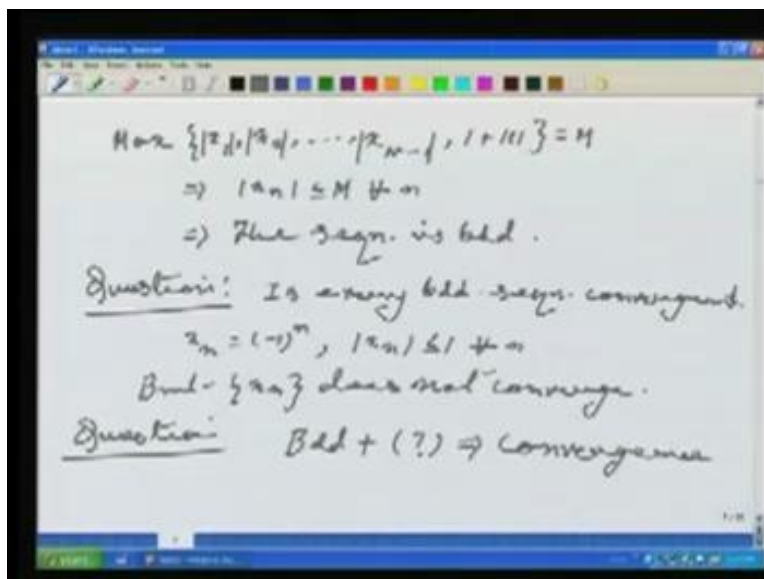 Max {|x₁|, |x₂|, ..., |x_{N-1}|, 1+|l|} = M
⇒ |xₙ| ≤ M ∀ n
⇒ The seqn. is bdd.
Question: Is every bdd. seqn. convergent.
xₙ = (-1)ⁿ, |xₙ| ≤ 1 ∀ n
But {xₙ} does not converge.
Question Bdd + (?) ⇒ Convergence